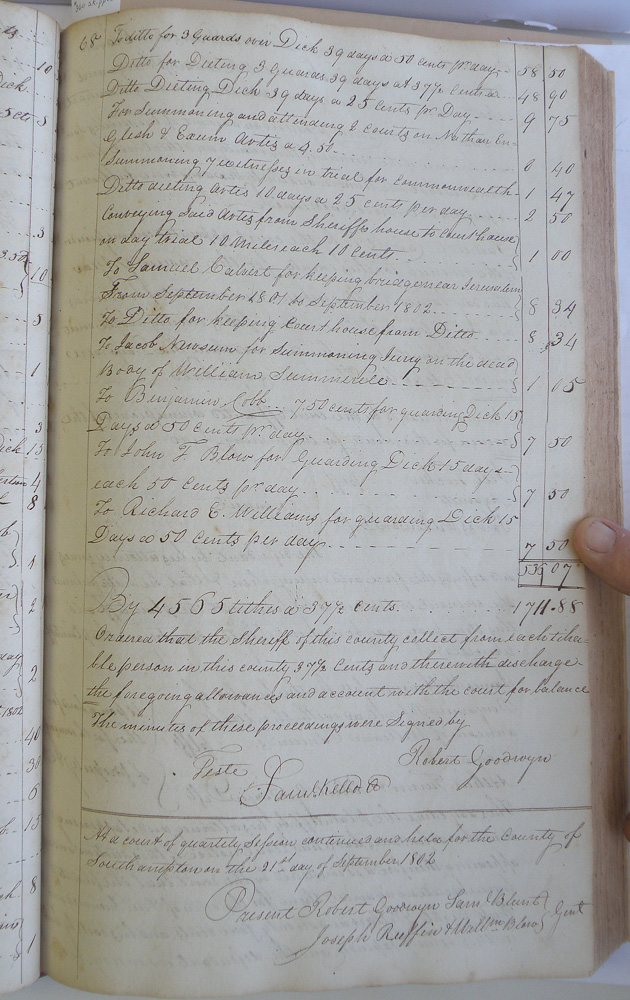 68 To ditto for 3 Guards over Dick 39 days a 50 cents pr. day 58 50
Ditto for Dieting 3 Guards 39 days at 37½ Cents 48 90
Ditto Dieting Dick 39 days a 25 Cents pr Day 9 75
For Summoning and attending 2 Courts on Nathan En-
glish & Exum Artis a 4.50
Summoning 7 witnesses in trial for Commonwealth 1 47
Ditto dieting Artis 10 days a 25 cents per day 2 50
Conveying Said Artis from Sheriffs house to Courthouse
on day trial 10 Miles each 10 Cents 1 00
To Samuel Calvert for keeping bridge near Jerusalem
From September 1801 to September 1802 8 34
To Ditto for keeping Courthouse from Ditto 8 34
To Jacob for Summoning Jury on the dead
Body of William 1 05
To Benjamin Cobb 7 50 cents for guarding Dick 15
Days a 50 cents pr. day 7 50
To John F. Blow for Guarding Dick 15 days
each 50 Cents pr day 7 50
To Richard E. Williams for guarding Dick 15
Days a 50 Cents per day 7 50
07
By 4565 tithes a 37½ Cents. 1711.88
Ordered that the Sheriff of this county collect from each titha-
ble person in this county 37½ Cents and therewith discharge
the foregoing allowances and account with the court for balance
The minutes of these proceedings were Signed by
Robert Goodwyn
Teste
Saml Kello Cl
At a court of quarterly Session continued and held for the County of
Southampton on the 21st day of September 1802
Present Robert Goodwyn Sam Blunt
Joseph Ruffin & Willm Blow Gent